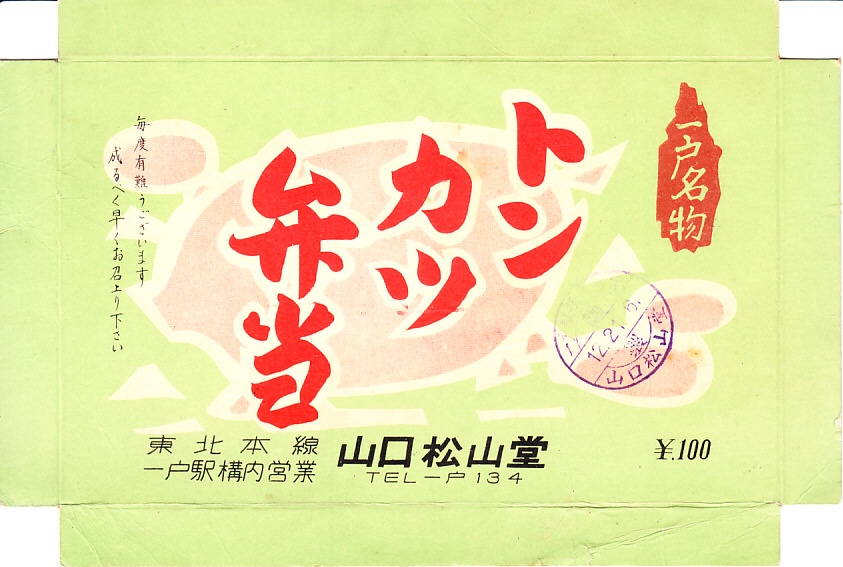 一戸名物
トン
カツ
弁当
毎度有難うございます
成るべく早くお召上り下さい
12.21.
山口松山堂
東北本線
一戸駅構内営業
山口松山堂
TEL一戸134
¥.100